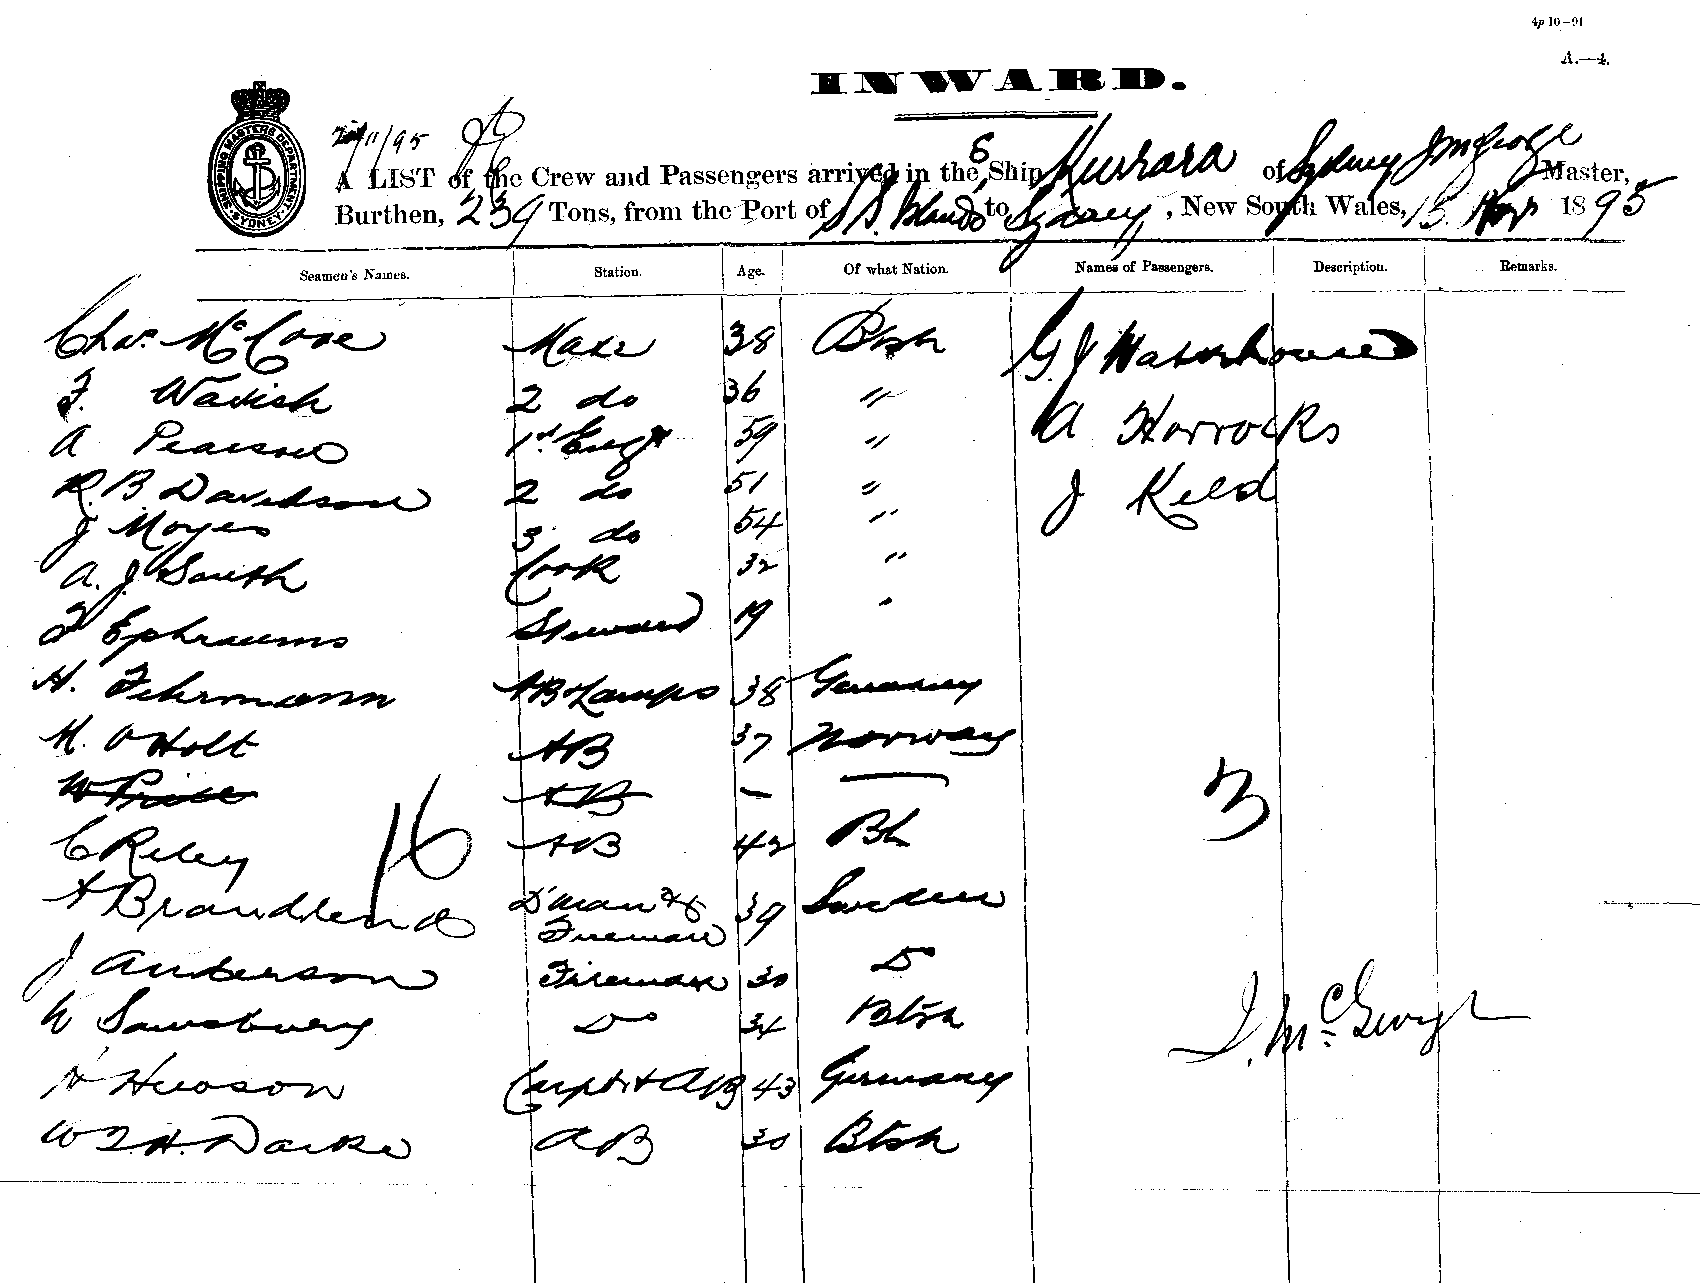 4p 10—91
A.—4.
INWARD.
SHIPPING MASTERS DEPARTMENT SYDNEY
11/95
A LIST of the Crew and Passengers arrived in the S Ship Kurrara of Sydney Master,
Burthen, 239 Tons, from the Port of S S. Islands to Sydney, New South Wales, 1895
Seamen's Names. Station. Age. Of what Nation. Names of Passengers. Description. Remarks.
Chas. McCove Mate 38 Btsh G. J Waterhouse
F. Wavish 2 do 36 " A Horrocks
A Pearson 1st Engr 59 " J Keld
R. B Davidson 2 do 51 "
J Moyes 3 do 54 "
A. J. South Cook 32 "
F Ephraums Steward 19 "
H. Fehrmann AB & Lamps 38 Germany
M. O Holt AB 37 Norway
W Price AB —
3
C Riley AB 42 Bh
16
A D'man & Fireman 39 Sweden
J Anderson Fireman 30 Do
W Sawsbury Do 34 Btsh
J. McGeorge
H Hewson Carptr & AB 43 Germany
W T. H. Darke AB 30 Btsh